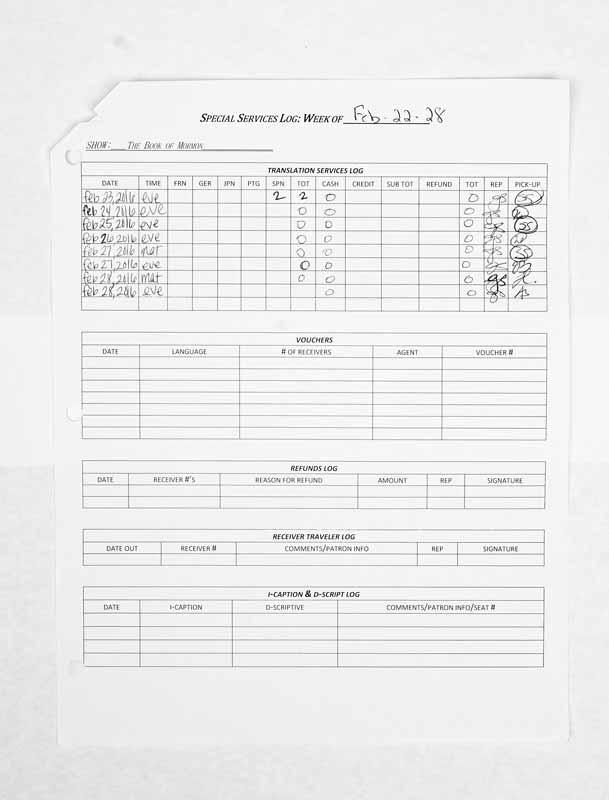 SPECIAL SERVICES LOG: WEEK OF Feb - 22 - 28
SHOW: THE BOOK OF MORMON
TRANSLATION SERVICES LOG
DATE TIME FRN GER JPN PTG SPN TOT CASH CREDIT SUB TOT REFUND TOT REP PICK-UP
Feb 23, 2016 eve 2 2 0 0 gs
Feb 24, 2016 eve 0 0 0 gs
Feb 25, 2016 eve 0 0 0 gs
Feb 26 2016 eve 0 0 0 gs
Feb 27, 2016 mat 0 0 0 gs
Feb 27, 2016 eve 0 0 0
Feb 28, 2016 mat 0 0 0 gs
Feb 28, 2016 eve 0 0 gs
VOUCHERS
DATE LANGUAGE # OF RECEIVERS AGENT VOUCHER #
REFUNDS LOG
DATE RECEIVER #'S REASON FOR REFUND AMOUNT REP SIGNATURE
RECEIVER TRAVELER LOG
DATE OUT RECEIVER # COMMENTS/PATRON INFO REP SIGNATURE
I-CAPTION & D-SCRIPT LOG
DATE I-CAPTION D-SCRIPTIVE COMMENTS/PATRON INFO/SEAT #